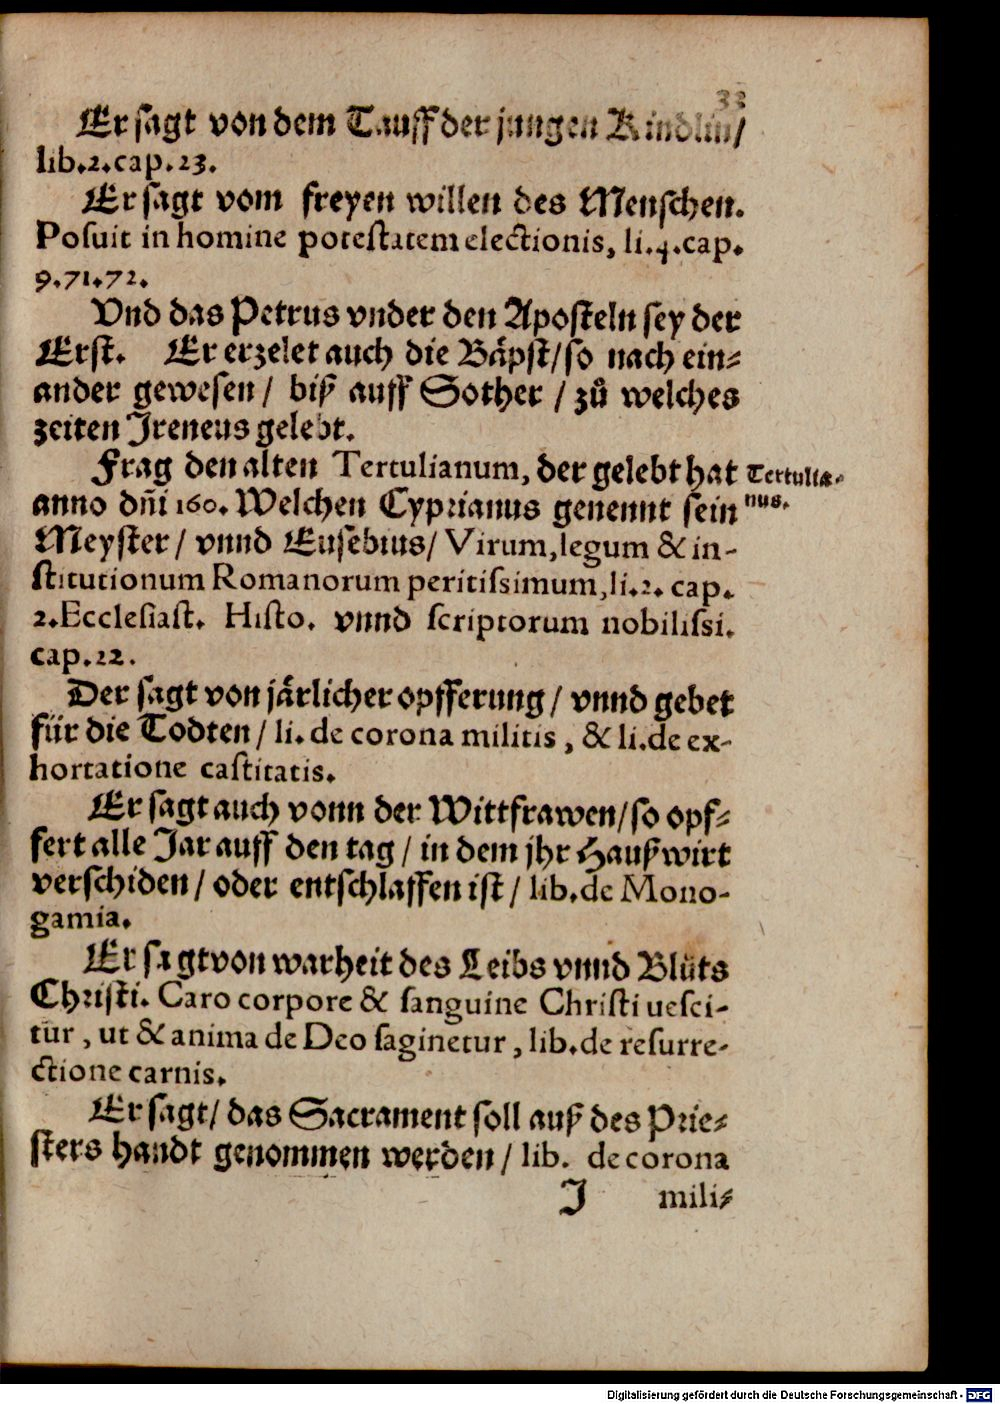 33
Er sagt von dem Tauff der jungen Kindlin/
lib.2.cap.23.
Er sagt vom freyen willen des Menschen.
Posuit in homine potestatem electionis, li.4.cap.
9.71.72.
Vnd das Petrus vnder den Aposteln sey der
Erst. Er erzelet auch die Bäpst/so nach ein-
ander gewesen/ biß auff Sother / zů welches
zeiten Ireneus gelebt.
Frag den alten Tertulianum, der gelebt hat
Tertulia-
nus.
anno dñi 160. Welchen Cyprianus genennt sein
Meyster/ vnnd Eusebius/ Virum, legum & in-
stitutionum Romanorum peritissimum, li.2. cap.
2.Ecclesiast. Histo. vnnd scriptorum nobilissi.
cap.22.
Der sagt von järlicher opfferung/ vnnd gebet
für die Todten/ li. de corona militis, & li.de ex-
hortatione castitatis.
Er sagt auch vonn der Wittfrawen/so opf-
fert alle Jar auff den tag/ in dem jhr Haußwirt
verschiden/ oder entschlaffen ist/ lib.de Mono-
gamia.
Er sagt von warheit des Leibs vnnd Blůts
Christi. Caro corpore & sanguine Christi uesci-
tur, ut & anima de Deo saginetur, lib.de resurre-
ctione carnis.
Er sagt/ das Sacrament soll auß des Prie-
sters handt genommen werden/ lib. de corona
J mili-
Digitalisierung gefördert durch die Deutsche Forschungsgemeinschaft - DFG